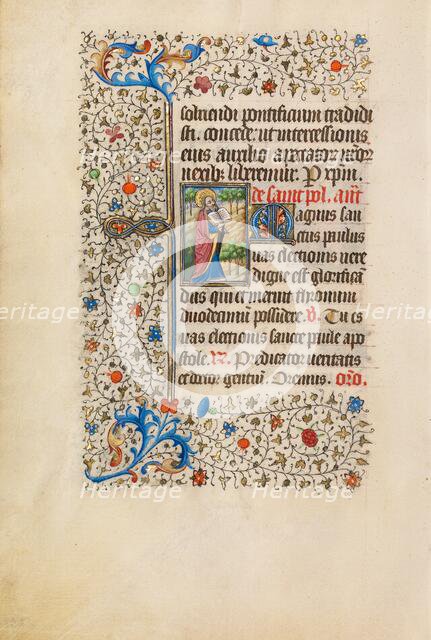 soluendi pontificium tradidi
sti. concede: ut intercessionis
eius auxilio a peccatorum nostrorum
nexib; liberemur. P xpm.
de saint pol. ant
Sanctus paulus
uas electionis uere
digne est glorifican
dus qui et meruit thronum
duodecimum possidere. V. Tu es
uas electionis sancte paule apo
stole. R. Predicator ueritatis
et doctor gentium. Oremus. oro.
Heritage
Heritage
Heritage
Heritage
Heritage
Heritage